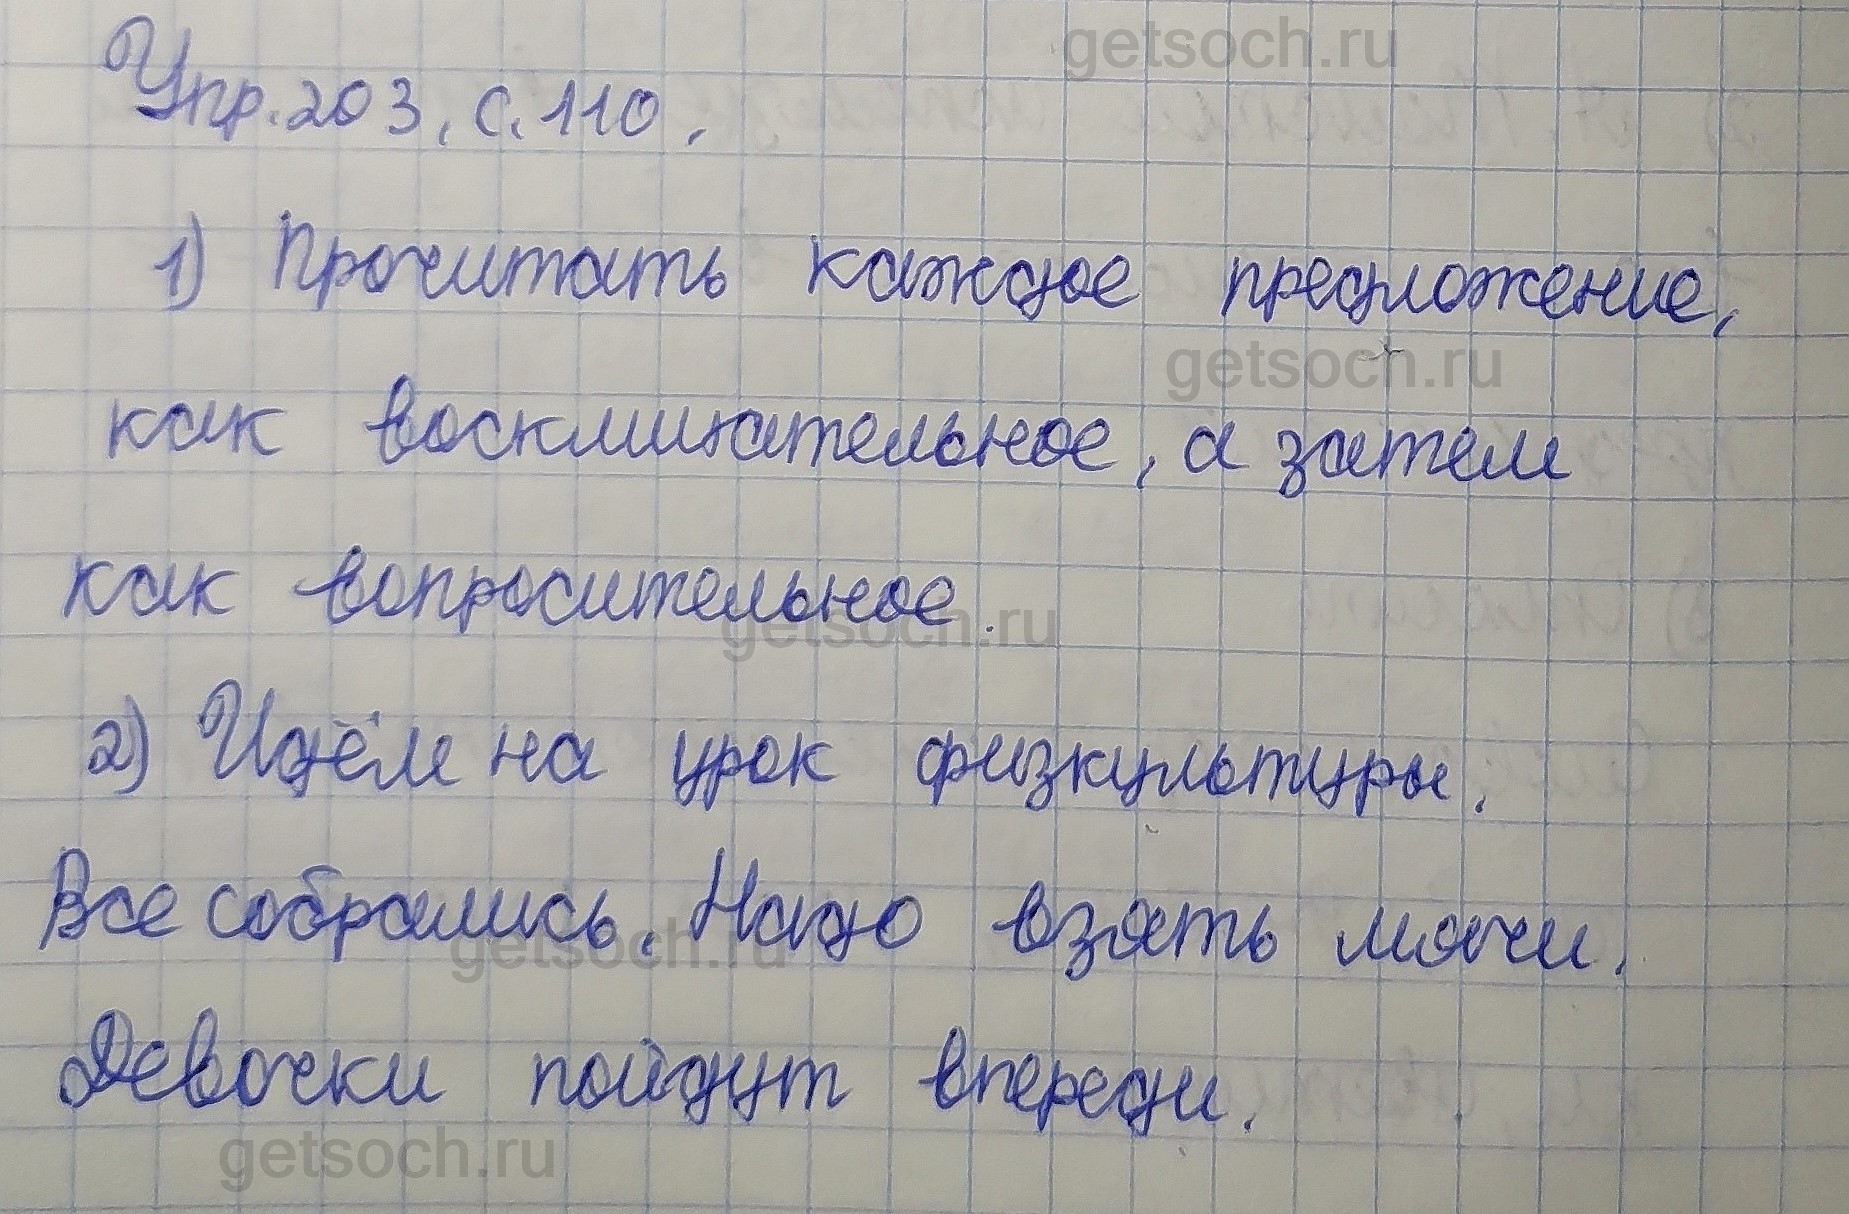 getsoch.ru
Упр. 203, с. 110.
1) Прочитать каждое предложение,
getsoch.ru
как восклицательное, а затем
как вопросительное.
getsoch.ru
2) Идём на урок физкультуры.
Все собрались. Надо взять мячи.
getsoch.ru
Девочки пойдут впереди.
getsoch.ru